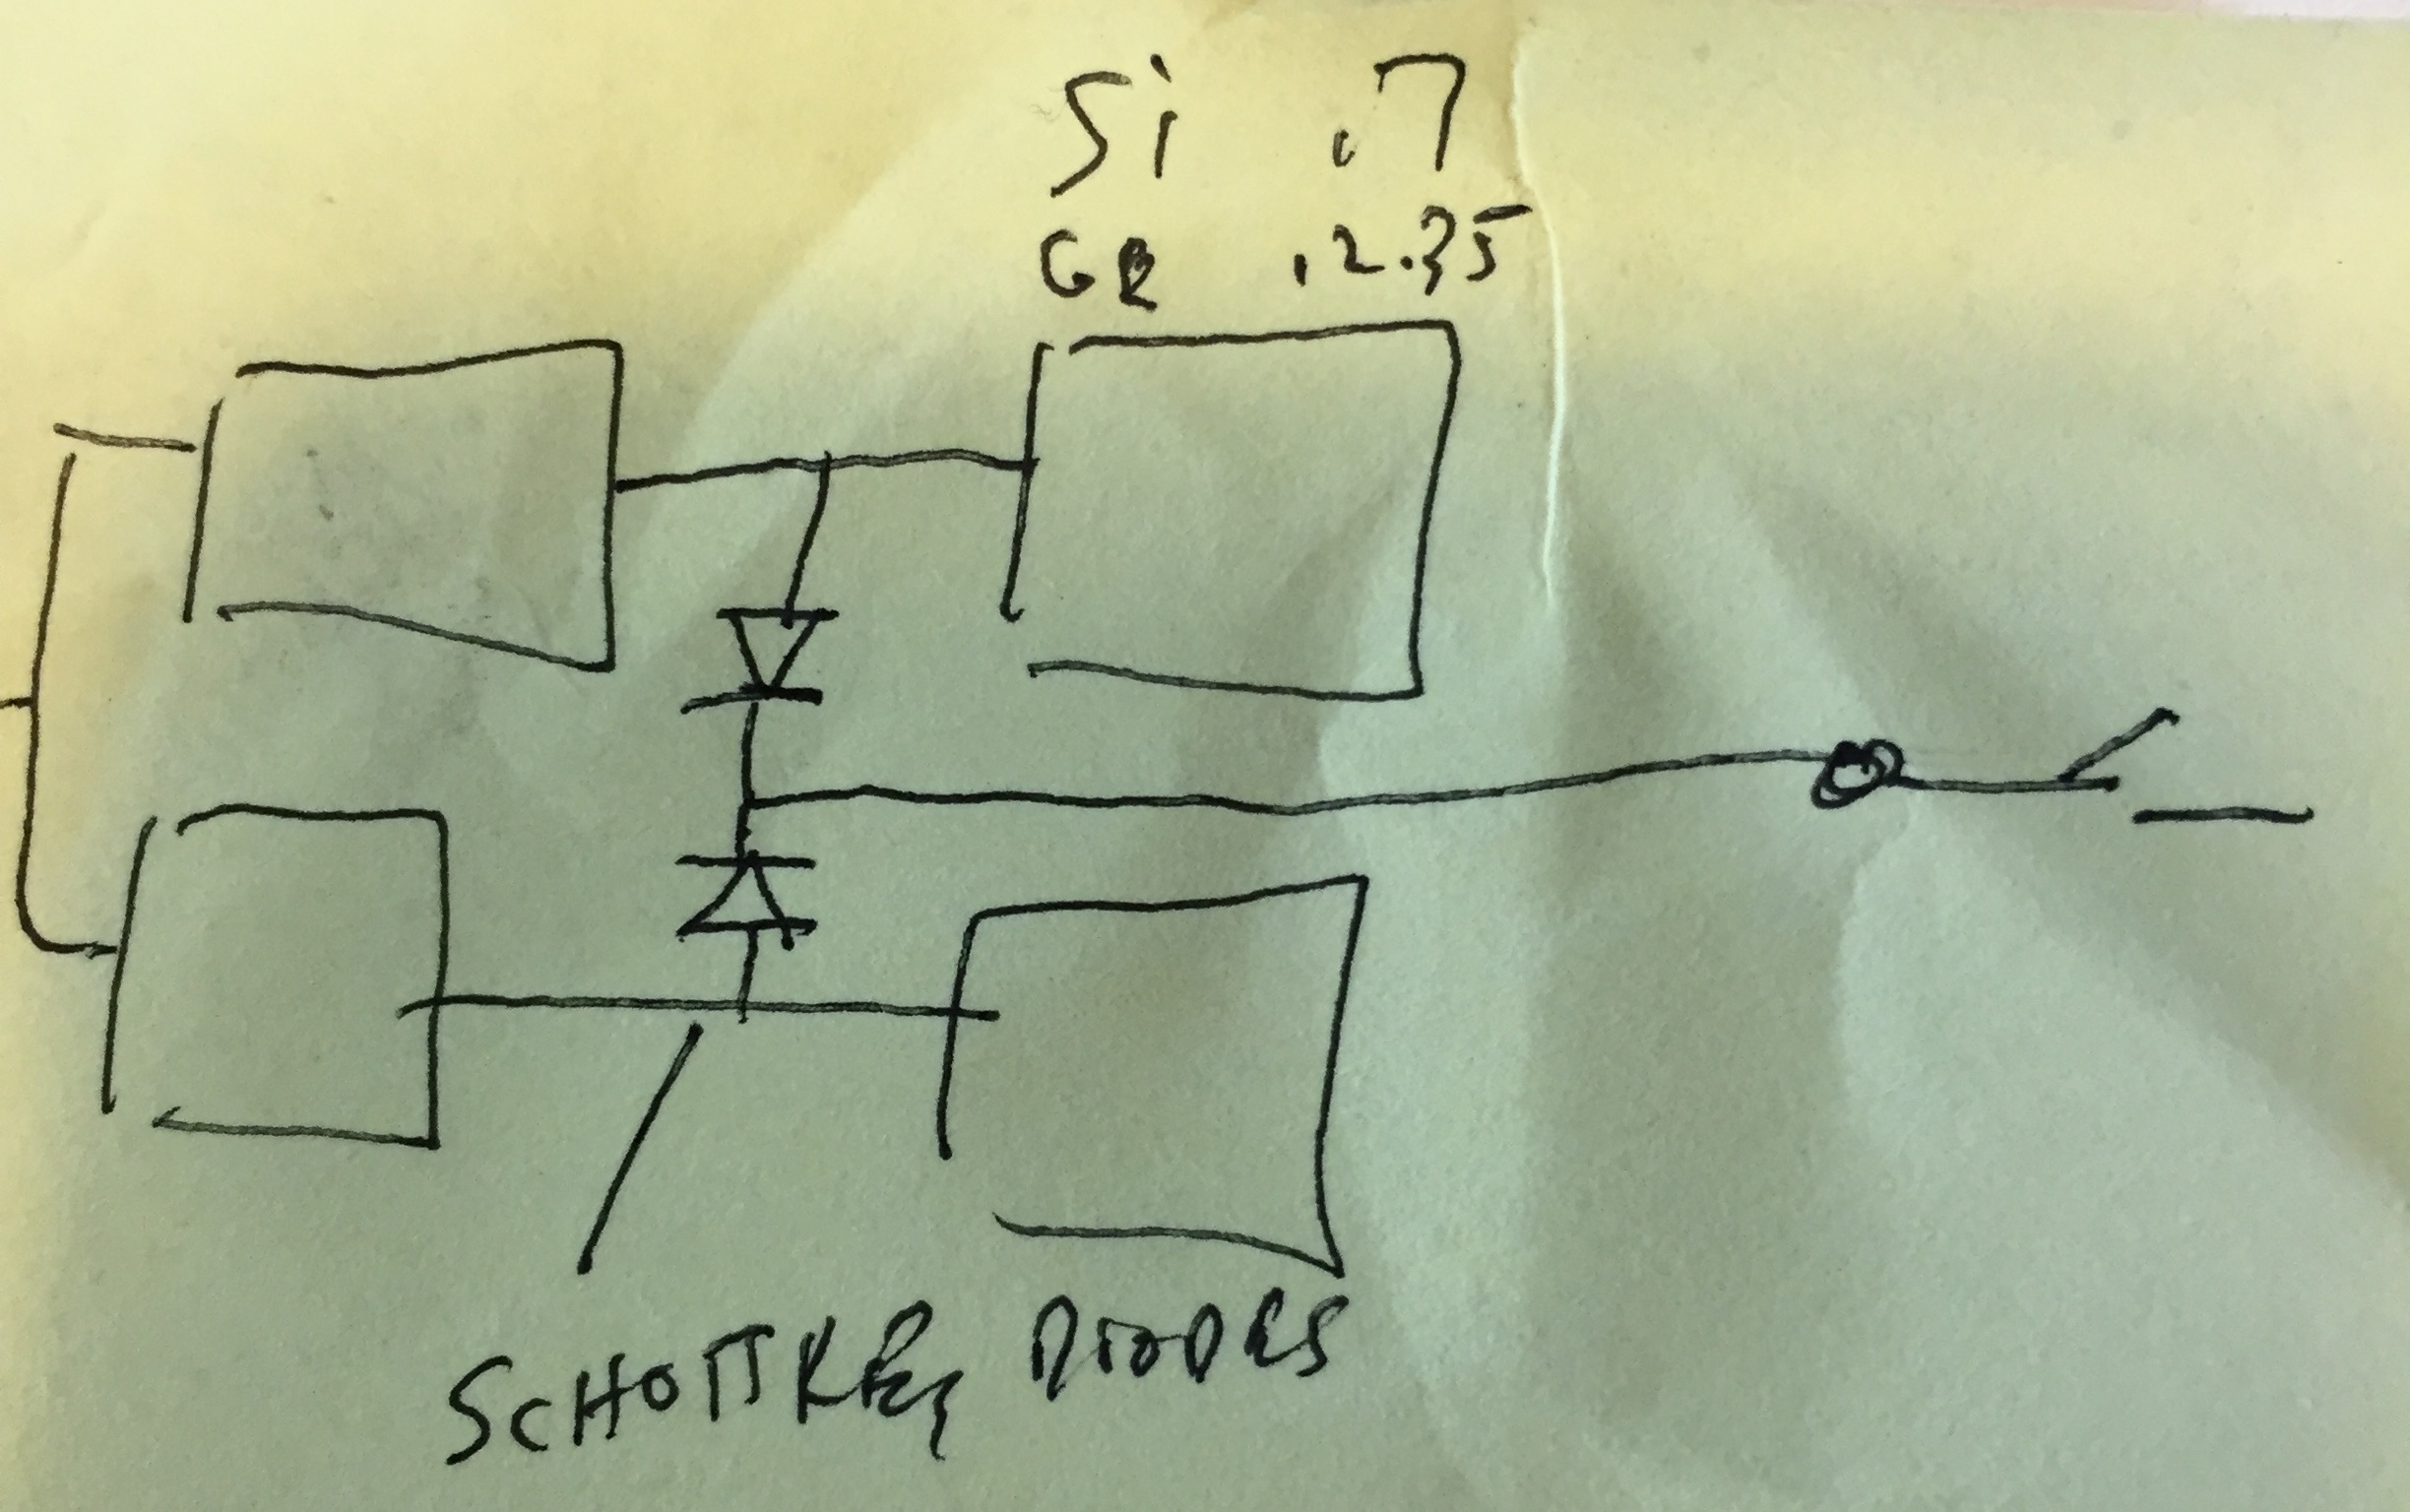 Si .7
Ge .2.35
SCHOTTKEY DIODES